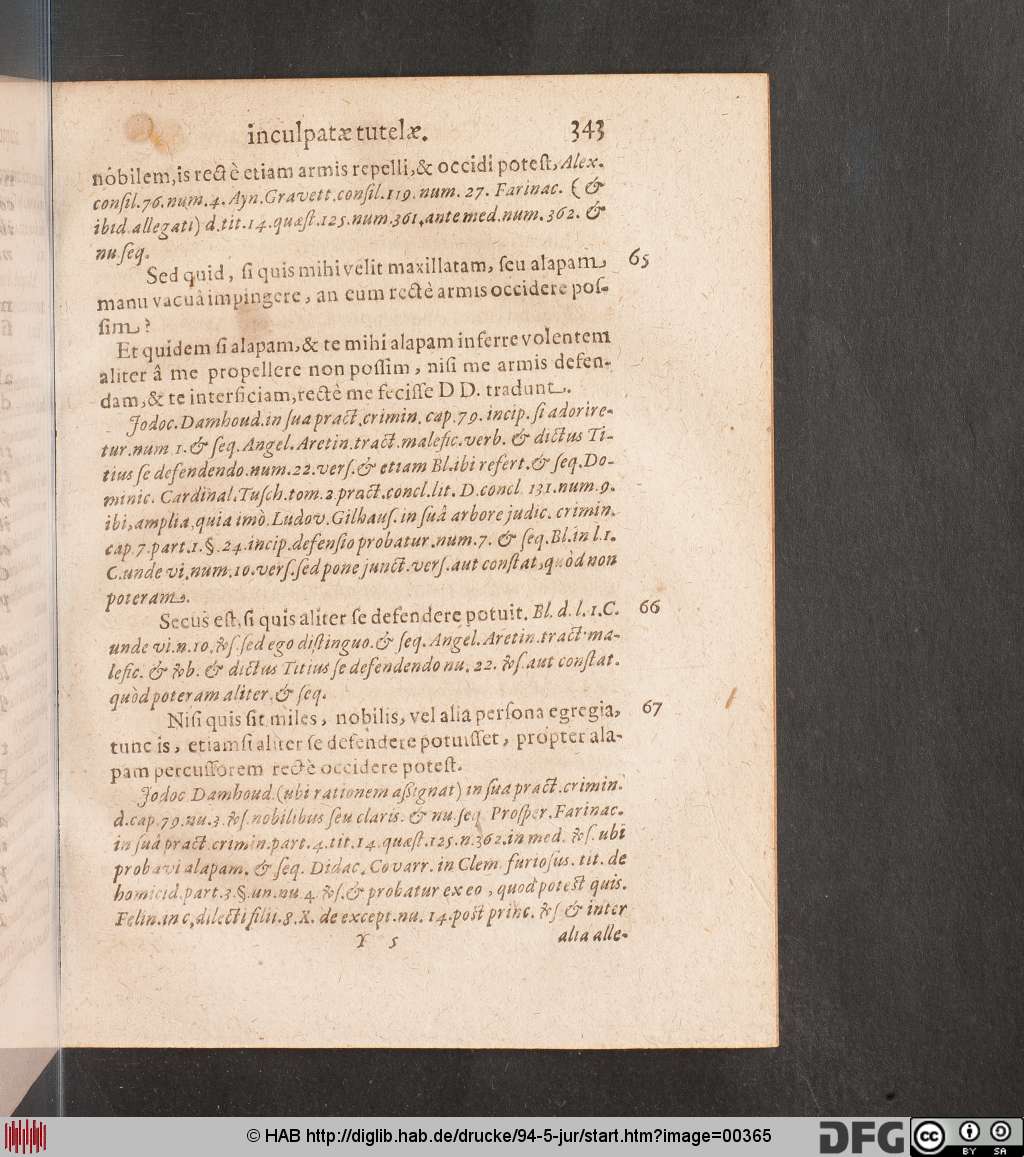 inculpatæ tutelæ. 343
nobilem, is rectè etiam armis repelli, & occidi potest, Alex.
consil. 76. num. 4. Ayn. Gravett. consil. 119. num. 27. Farinac. (&
ibid. allegati) d. tit. 14. quæst. 125. num. 361. ante med. num. 362. &
nu seq.
Sed quid, si quis mihi velit maxillatam, seu alapam 65
manu vacuâ impingere, an eum rectè armis occidere pos-
sim?
Et quidem si alapam, & te mihi alapam inferre volentem
aliter â me propellere non possim, nisi me armis defen-
dam, & te interficiam, rectè me fecisse DD. tradunt.
Jodoc. Damhoud. in sua pract. crimin. cap. 79. incip. si adorire-
tur. num 1. & seq. Angel. Aretin. tract. malefic. verb. & dictus Ti-
tius se defendendo. num. 22. vers. & etiam Bl. ibi refert. & seq. Do-
minic. Cardinal. Tusch. tom. 2. pract. concl. lit. D. concl. 131. num. 9.
ibi, amplia, quia imò. Ludov. Gilhaus. in suâ arbore judic. crimin.
cap. 7. part. 1. §. 24. incip. defensio probatur. num. 7. & seq. Bl. in l. 1.
C. unde vi. num. 10. vers. sed pone junct. vers. aut constat, quòd non
poteram.
Secus est, si quis aliter se defendere potuit. Bl. d. l. 1. C. 66
unde vi. n. 10. vs. sed ego distinguo. & seq. Angel. Aretin. tract. ma-
lefic. & vb. & dictus Titius se defendendo nu. 22. vs. aut constat.
quòd poteram aliter, & seq.
Nisi quis sit miles, nobilis, vel alia persona egregia, 67
tunc is, etiamsi aliter se defendere potuisset, propter ala-
pam percussorem rectè occidere potest.
Jodoc Damhoud. (ubi rationem assignat) in sua pract. crimin.
d. cap. 79. nu. 3. vs. nobilibus seu claris. & nu. seq. Prosper. Farinac.
in suâ pract. crimin. part. 4. tit. 14. quæst. 125. n. 362. in med. vs. ubi
probavi alapam. & seq. Didac. Covarr. in Clem. furiosus. tit. de
homicid. part. 3. §. un. nu. 4. vs. & probatur ex eo, quod potest quis.
Felin. in c. dilecti filii. 8. X. de except. nu. 14. post princ. vs & inter
Y 5 alia alle-
© HAB http://diglib.hab.de/drucke/94-5-jur/start.htm?image=00365
DFG cc BY SA